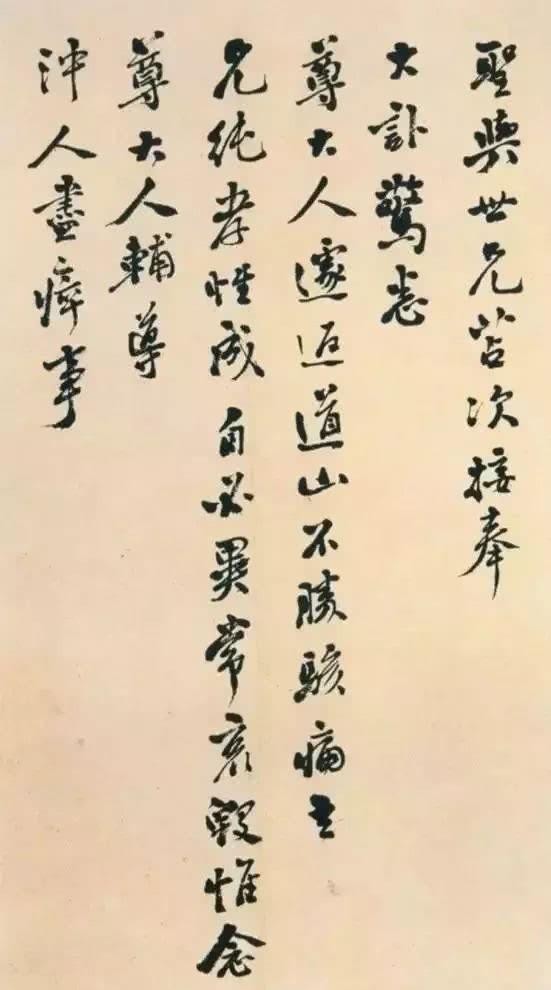 聖與世兄苫次接奉
大訃驚悉
尊大人遽返道山不勝駭痛
兄純孝性成自必異常哀毀惟念
尊大人輔導
沖人盡瘁事